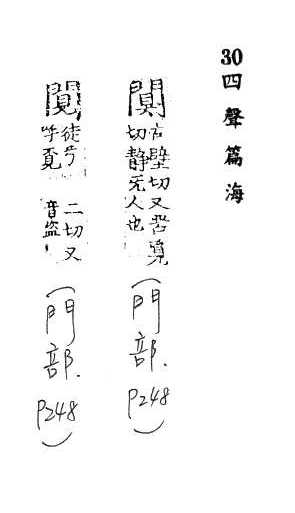 30四聲篇海
古壁切又苦覓
切静无人也
(門部. P248)
徒兮 二切又
呼覓 音盜
(門部. P248)